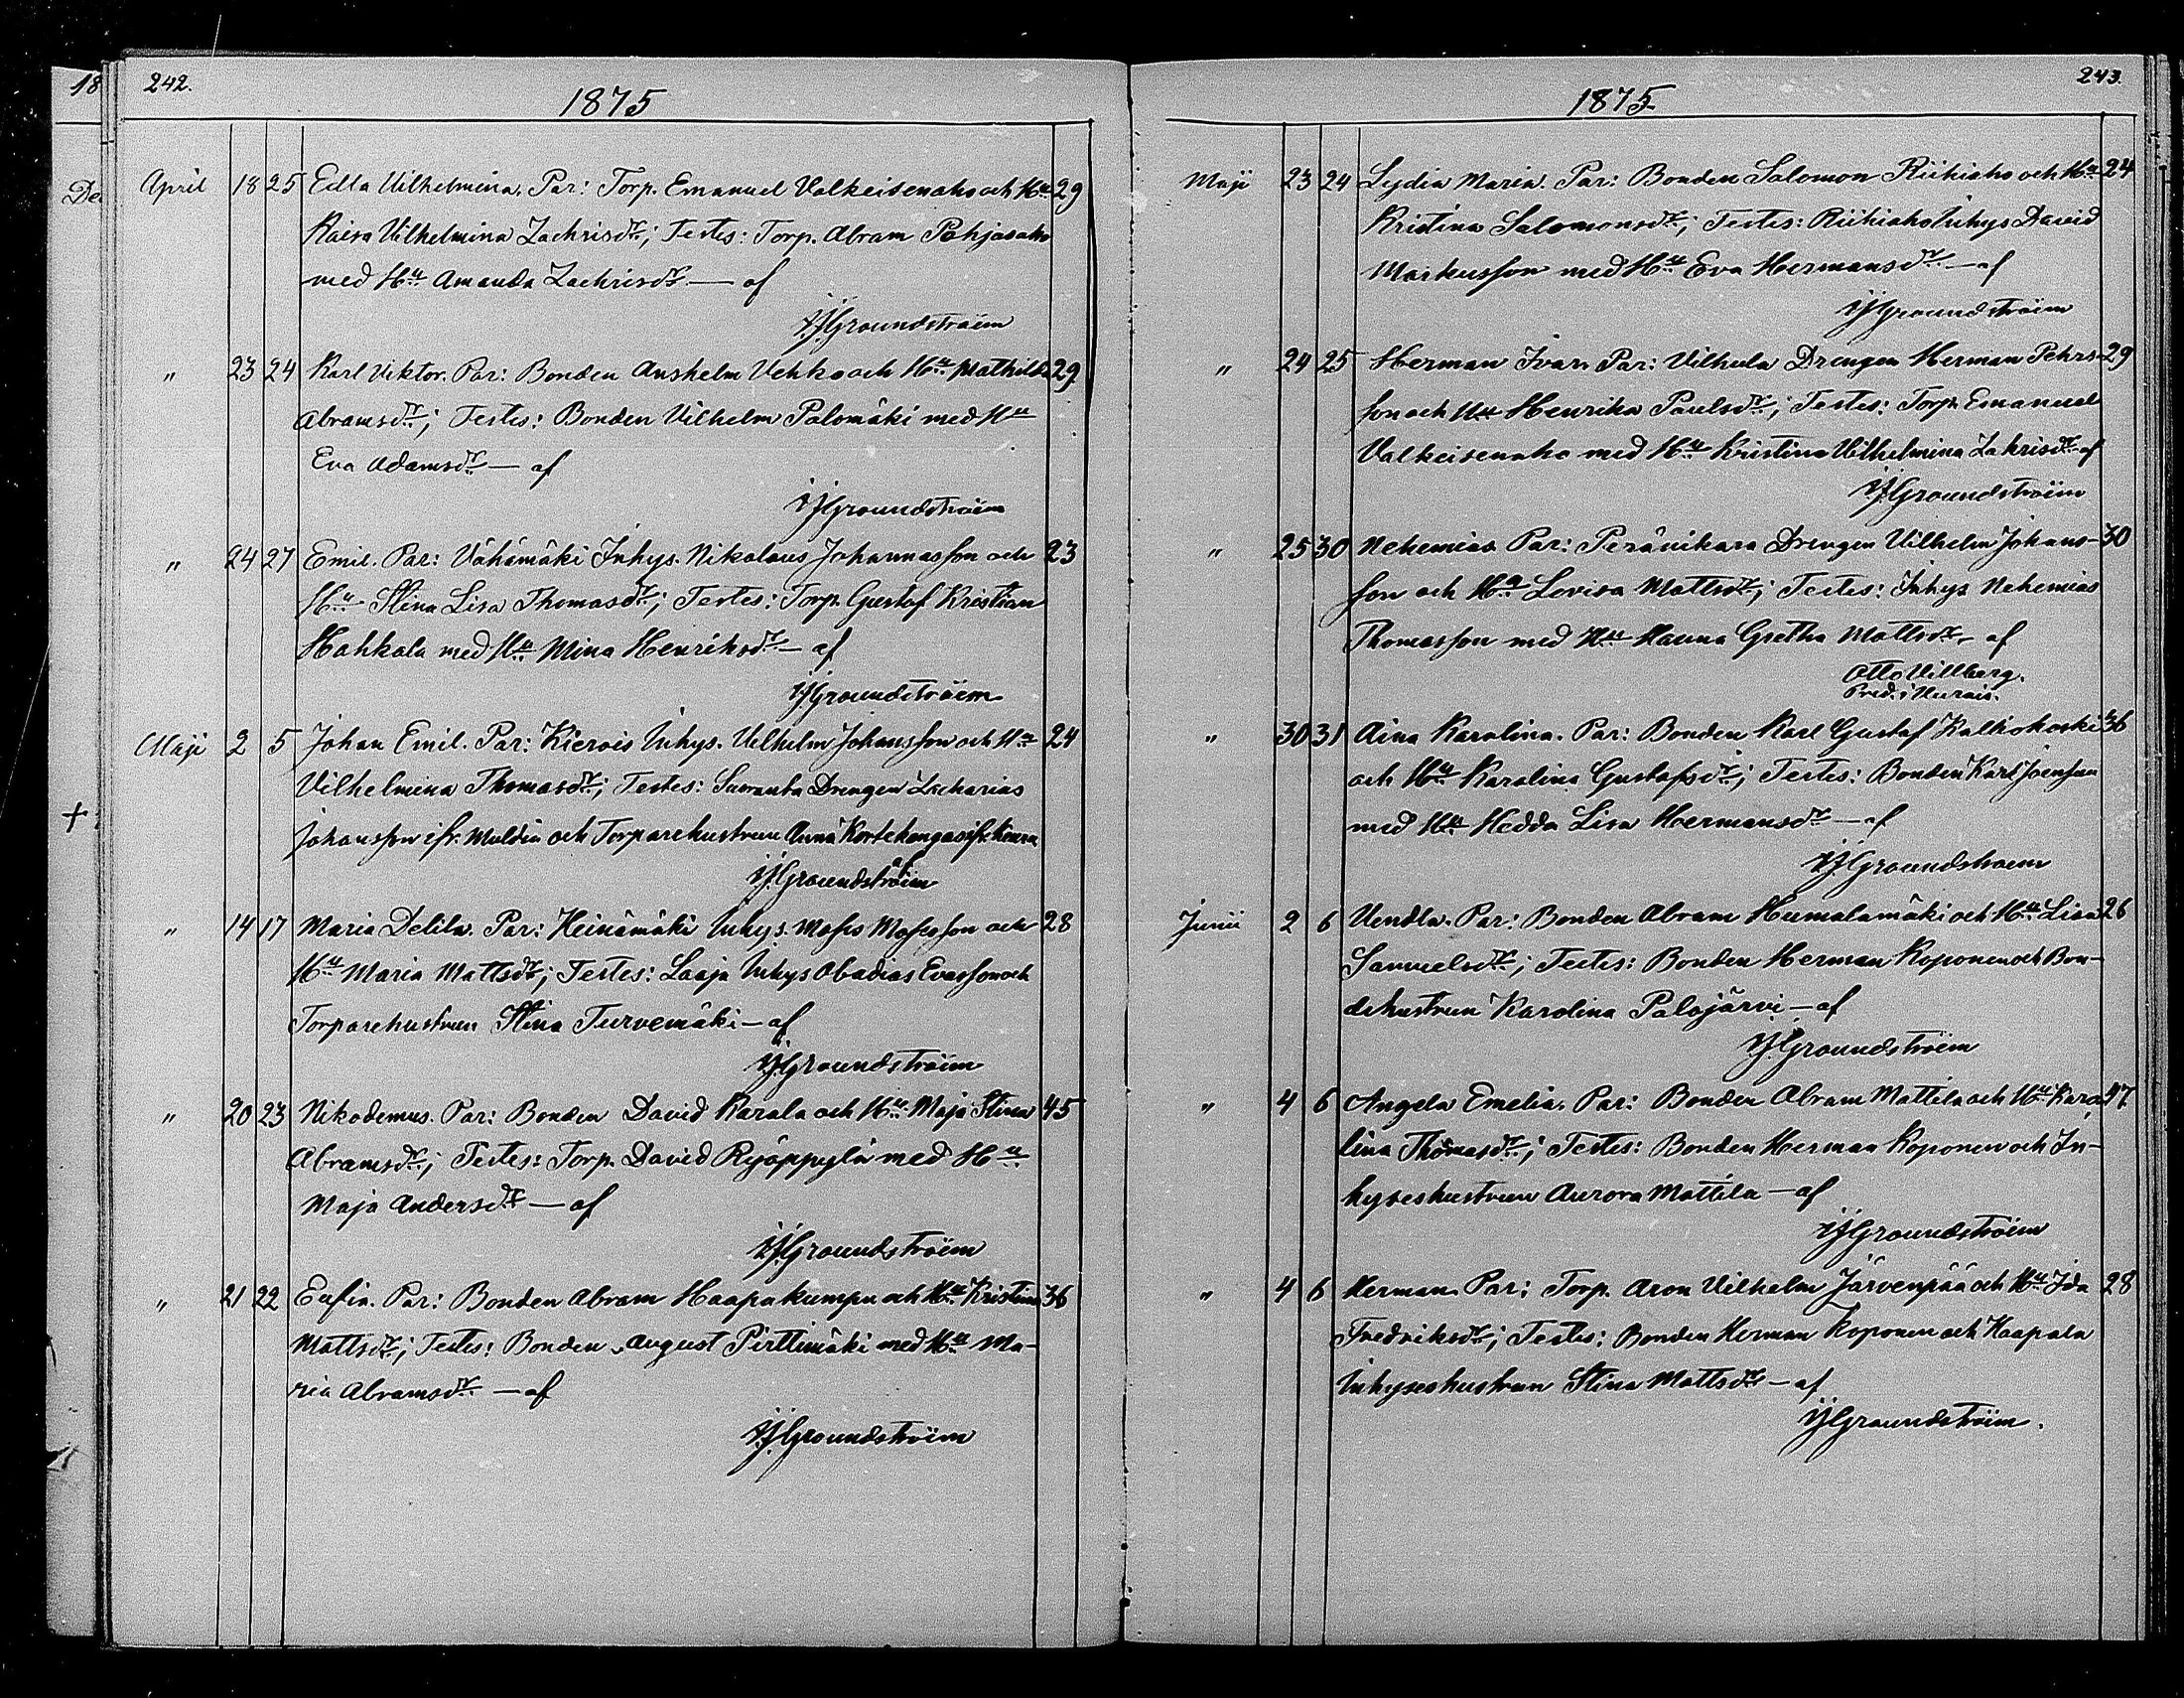 18
De
+
242.
1875
April 18 25 Edla Vilhelmina. Par: Torp. Emanuel Valkeisenaho och Hu 29
Kaisa Vilhelmina Zachrisdr; Testes: Torp. Abram Pohjasaho
med Hu Amanda Zachrisdr — af
Groundstroëm
" 23 24 Karl Viktor. Par: Bonden Anshelm Vehko och Hu Mathilda 29
Abramsdr; Testes: Bonden Vilhelm Palomäki med Hu
Eva Adamsdr — af
Groundstroëm
" 24 27 Emil. Par: Vähämäki Inhys. Nikolaus Johannasson och 23
Hu Stina Lisa Thomasdr; Testes: Torp. Gustaf Kristian
Hahkala med Hu Mina Henriksdr — af
Groundstroëm
Maji 2 5 Johan Emil. Par: Kierois Inhys. Vilhelm Johansson och Hu 24
Vilhelmina Thomasdr; Testes: Drengen Zacharias
Johansson ifr. Multia och Torparehustrun Anna Kortekangas ifr. Keuru
af
Groundstroëm
" 14 17 Maria Delila. Par: Heinämäki Inhys. Moses Mosesson och 28
Hu Maria Mattsdr; Testes: Laaja Inhys Obadias Evasson och
Torparehustrun Stina Turvemäki — af
Groundstroëm
" 20 23 Nikodemus. Par: Bonden David Karala och Hu Maja Stina 45
Abramsdr; Testes: Torp. David Ryöppylä med Hu
Maja Andersdr — af
Groundstroëm
" 21 22 Eufia. Par: Bonden Abram Haapakumpu och Hu Kristina 36
Mattsdr; Testes: Bonden August Pirttimäki med Hu Ma-
ria Abramsdr — af
Groundstroëm
243.
1875
Maji 23 24 Lydia Maria. Par: Bonden Salomon Riihiaho och Hu 24
Kristina Salomonsdr; Testes: Riihiaho Inhys David
Markusson med Hu Eva Hermansdr — af
Groundstroëm
" 24 25 Herman Ivar. Par: Vilhula Drengen Herman Pehrs- 29
son och Hu Henrika Paulsdr; Testes: Torp. Emanuel
Valkeisenaho med Hu Kristina Vilhelmina Zakrisdr af
Groundstroëm
" 25 30 Nehemias. Par: Peränikara Drengen Vilhelm Johans- 30
son och Hu Lovisa Mattsdr; Testes: Inhys Nehemias
Thomasson med Hu Hanna Gretha Mattsdr — af
Otto Villberg.
Pred. i Uurais.
" 30 31 Aina Karolina. Par: Bonden Karl Gustaf Kalliokoski 36
och Hu Karolina Gustafsdr; Testes: Bonden Karl Joensuu
med Hu Hedda Lisa Hermansdr — af
Groundstroem
Junii 2 6 Vendla. Par: Bonden Abram Humalamäki och Hu Lisa 26
Samuelsdr; Testes: Bonden Herman Koponen och Bon-
dehustrun Karolina Palojärvi — af
Groundstroëm
" 4 6 Angela Emelia. Par: Bonden Abram Mattila och Hu Karo- 47
lina Thomasdr; Testes: Bonden Herman Koponen och In-
hyseshustrun Aurora Mattila — af
Groundstroëm
" 4 6 Herman. Par: Torp. Aron Vilhelm Järvenpää och Hu Ida 28
Fredriksdr; Testes: Bonden Herman Koponen och Haapala
Inhyseshustrun Stina Mattsdr — af
Groundstroëm.